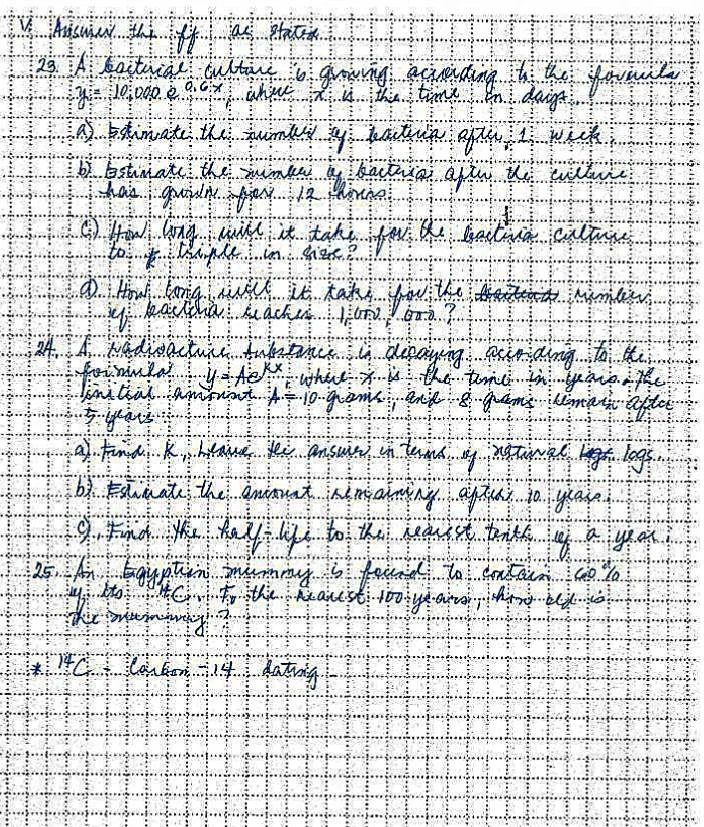 V. Answer the ff as stated.
23. A bacterial culture is growing according to the formula
y = 10,000 e^0.6x, where x is the time in days.
a) Estimate the number of bacteria after 1 week.
b) Estimate the number of bacteria after the culture
has grown for 12 hours.
c) How long will it take for the bacteria culture
to triple in size?
d) How long will it take for the number
of bacteria reaches 1,000,000?
24. A radioactive substance is decaying according to the
formula y = Ae^kx, where x is the time in years. The
initial amount A = 10 grams, and 8 grams remain after
5 years.
a) Find k, Leave the answer in terms of natural logs.
b) Estimate the amount remaining after 10 years.
c) Find the half-life to the nearest tenth of a year.
25. An Egyptian mummy is found to contain 60%
of its ¹⁴C. To the nearest 100 years, how old is
the mummy?
* ¹⁴C - Carbon-14 dating